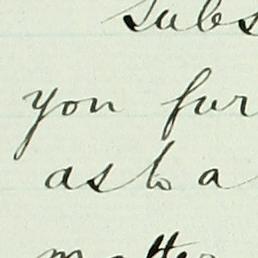 subs
you fur
as to a
matter